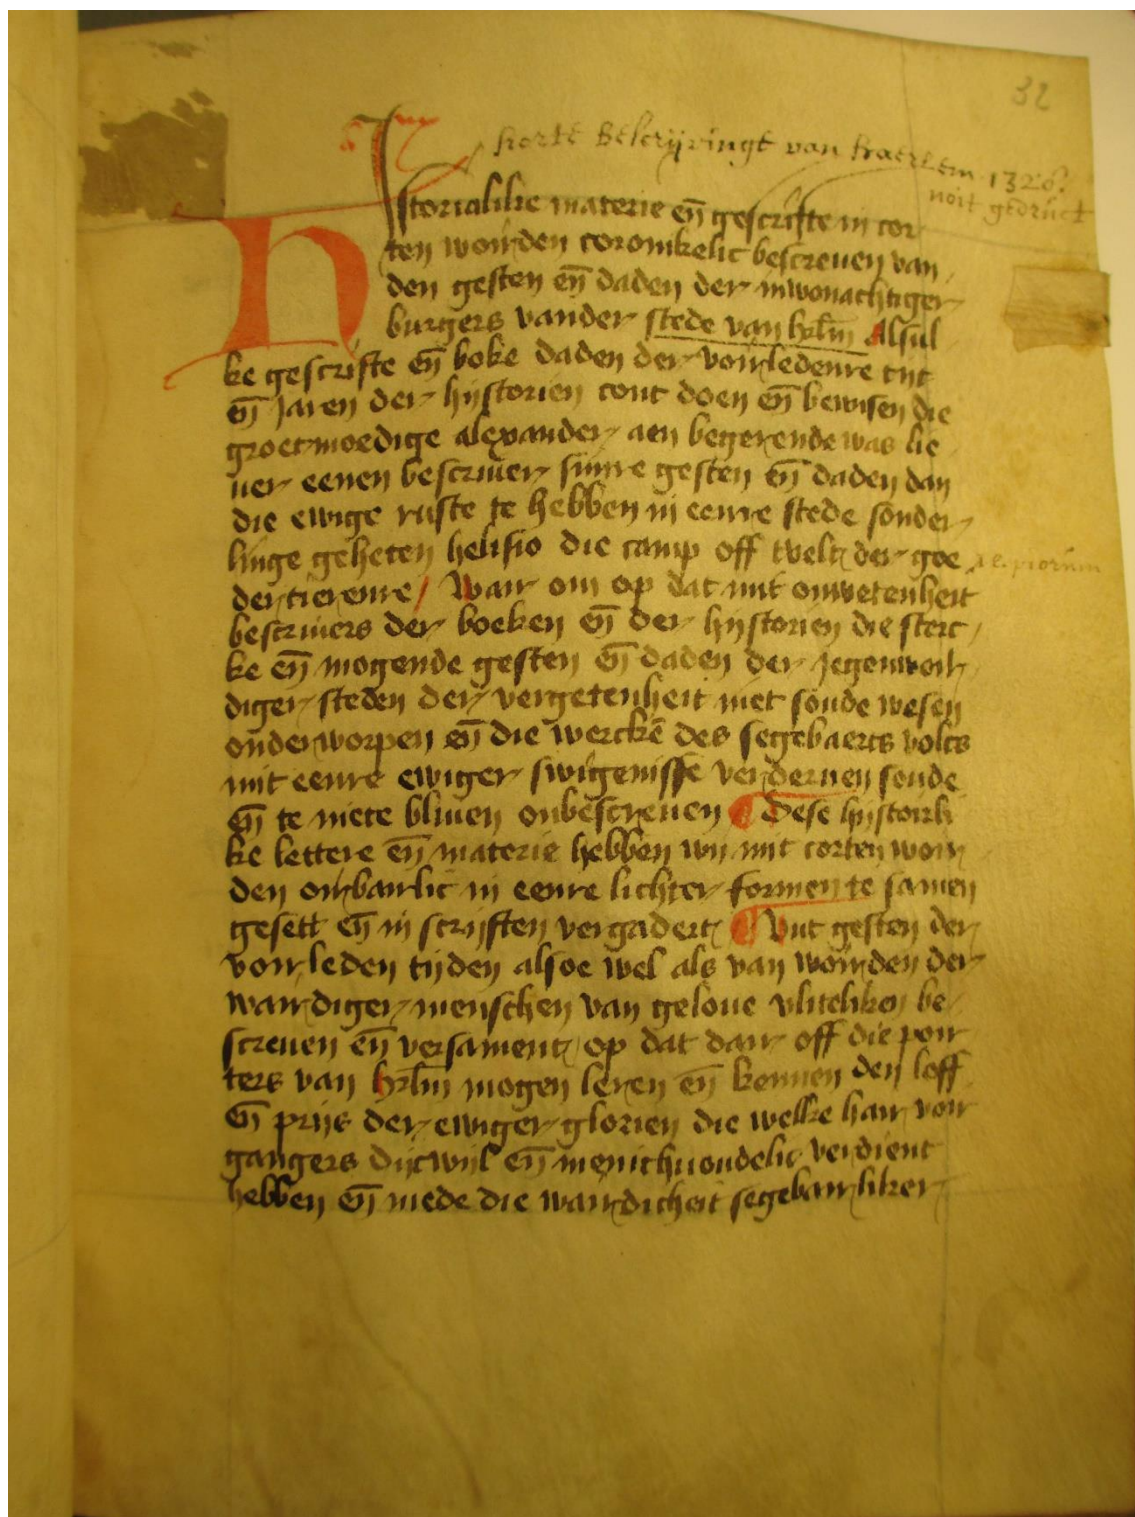 32
korte Bescrijvinge van Haerlem 1328.
noit gedruct
HIstorialike materie en̄ gescrifte in cor
ten woirden coronikelic bescreuen van
den gesten en̄ daden der inwonachtiger
burgers vander stede van hrlm̄ Alsul
ke gescrifte en̄ boke daden der voirledenre tijt
en̄ Jaren der hijstorien cont doen en̄ bewisen die
groetmoedige alexander aen begerende was lie
uer eenen bescriuer sijnre gesten en̄ daden dan
die ewige ruste te hebben in eenre stede sonder
linge geheten helisio die camp off velt der goe
dertierenre / Wair om op dat mit onwetenheit
bescriuers der boeken en̄ der hijstorien die sterc
ke en̄ mogende gesten en̄ daden der Jegenwoir
diger steden der vergetenheit niet soude wesen
onderworpen en̄ die wercke̅ des segebaers volcs
mit eenre ewiger swigenisse verderuen soude
en̄ te niete bliuen onbescreuen Dese hijstoirli
ke lettere en̄ materie hebben wij mit corten woir
den oirbairlic in eenre lichter formen te samen
gesett en̄ in scrijften vergadert Wut gesten der
voirleden tijden alsoe wel als van woirden der
wairdiger menschen van geloue vliteliken be
screuen en̄ versament op dat dair off die poir
ters van hrlm̄ mogen leren en̄ kennen den loff
en̄ prijs der ewiger glorien die welke hair voir
gangers dicwijl en̄ menichuoudelic verdient
hebben en̄ mede die wairdicheit segebairliker